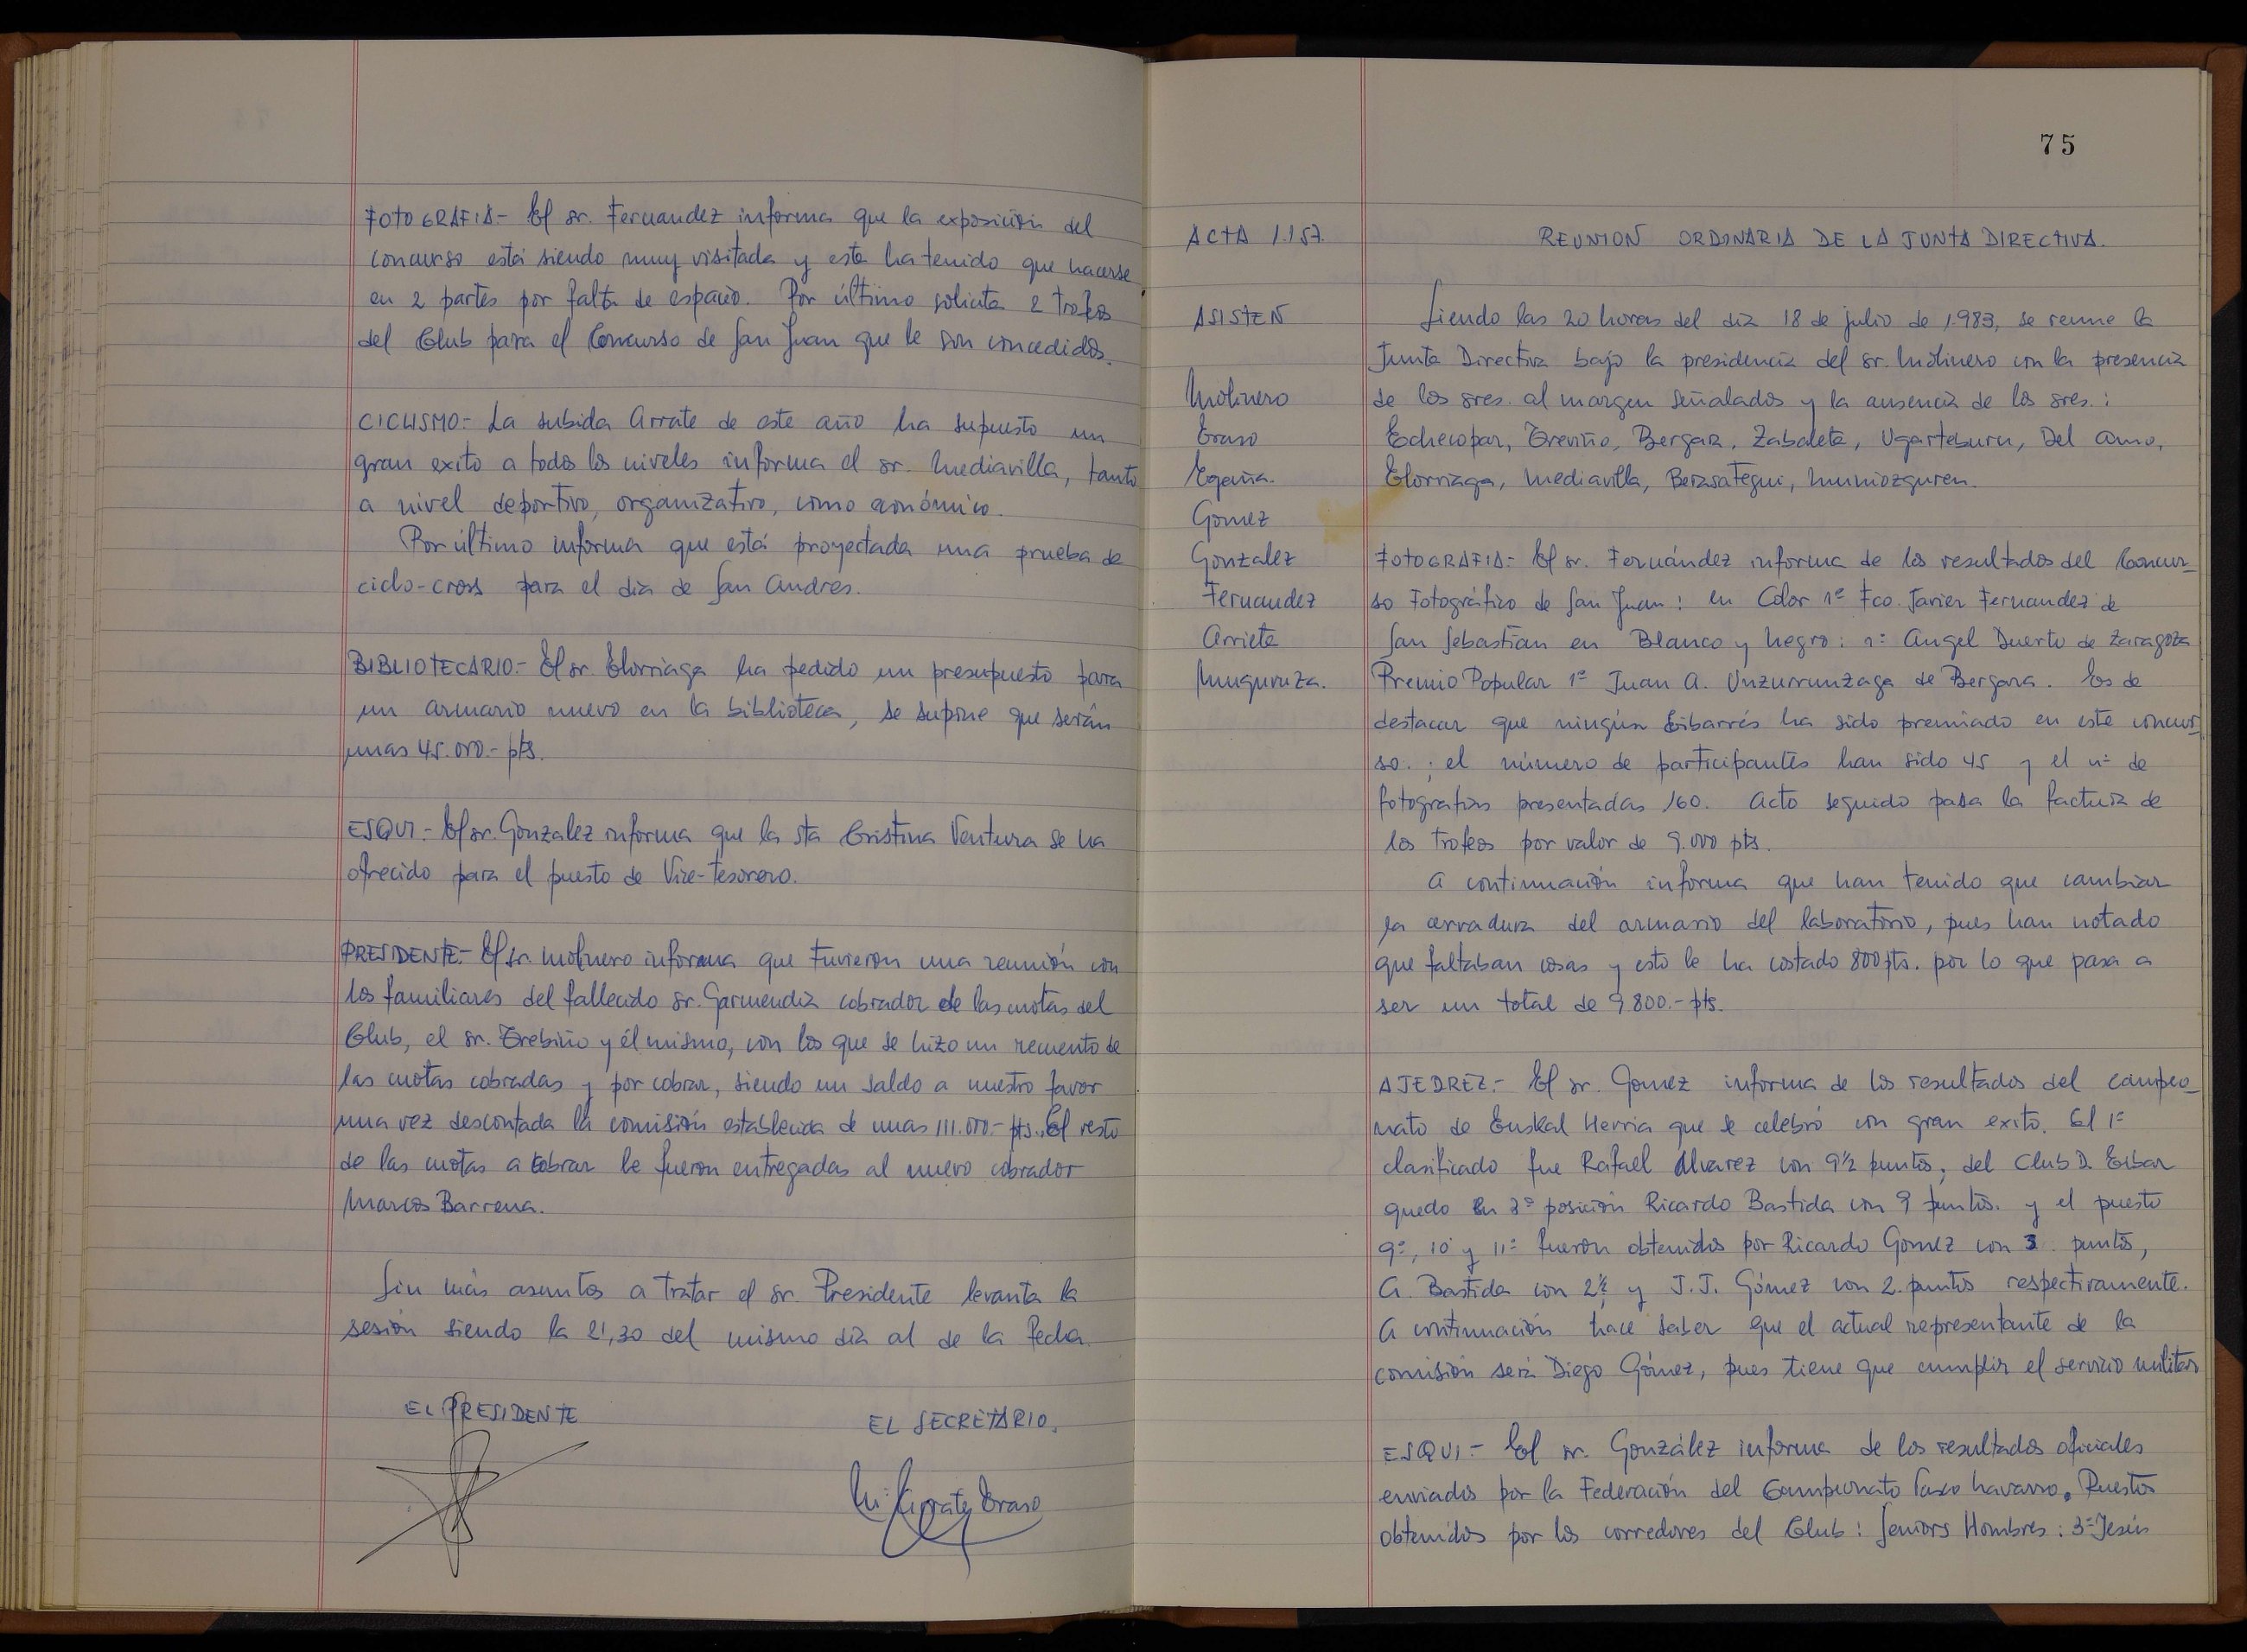 FOTOGRAFIA- El sr. Fernandez informa que la exposición del
concurso está siendo muy visitada y esta ha tenido que hacerse
en 2 partes por falta de espacio. Por último solicita 2 trofeos
del Club para el Concurso de San Juan que le son concedidos.
CICLISMO.- La subida Arrate de este año ha supuesto un
gran exito a todos los niveles informa el sr. Mediavilla, tanto
a nivel deportivo, organizativo, como económico.
Por último informa que está proyectada una prueba de
ciclo-cross para el dia de San Andrés.
BIBLIOTECARIO.- El sr. Elorriaga ha pedido un presupuesto para
un armario nuevo en la biblioteca, se supone que serán
unas 45.000.- pts.
ESQUI.- El sr. Gonzalez informa que la sta Cristina Ventura se ha
ofrecido para el puesto de Vice-tesorero.
PRESIDENTE.- El sr. Molinero informa que tuvieron una reunión con
los familiares del fallecido sr. Garmendia cobrador de las cuotas del
Club, el sr. Trebiño y él mismo, con los que se hizo un recuento de
las cuotas cobradas y por cobrar, siendo un saldo a nuestro favor
una vez descontada la comisión establecida de unas 111.000.- pts. El resto
de las cuotas a cobrar le fueron entregadas al nuevo cobrador
Marcos Barrena.
Sin más asuntos a tratar el sr. Presidente levanta la
sesión siendo la 21,30 del mismo dia al de la fecha.
EL PRESIDENTE
EL SECRETARIO.
75
ACTA 1.157.
REUNION ORDINARIA DE LA JUNTA DIRECTIVA.
ASISTEN
Molinero
Eraso
Egaña.
Gomez
Gonzalez
Fernandez
Arrieta
Muguruza.
Siendo las 20 horas del dia 18 de julio de 1.983, se reune la
Junta Directiva bajo la presidencia del sr. Molinero con la presencia
de los sres. al margen señalados y la ausencia de los sres.:
Echecopar, Treviño, Bergara, Zabaleta, Ugarteburu, Del Amo,
Elorriaga, Mediavilla, Berasategui, Muniozguren.
FOTOGRAFIA- El sr. Fernández informa de los resultados del Concur-
so Fotográfico de San Juan: en Color 1º Fco. Javier Fernandez de
San Sebastian en Blanco y Negro: 1º Angel Duerto de Zaragoza
Premio Popular 1º Juan A. Unzurrunzaga de Bergara. Es de
destacar que ningún Eibarrés ha sido premiado en este concur-
so.; el número de participantes han sido 45 y el nº de
fotografias presentadas 160. Acto seguido pasa la factura de
los trofeos por valor de 9.000 pts.
A continuación informa que han tenido que cambiar
la cerradura del armario del laboratorio, pues han notado
que faltaban cosas y esto le ha costado 800 pts. por lo que pasa a
ser un total de 9.800.- pts.
AJEDREZ.- El sr. Gomez informa de los resultados del campeo-
nato de Euskal Herria que se celebró con gran exito. El 1º
clasificado fue Rafael Alvarez con 9½ puntos, del Club D. Eibar
quedo en 2ª posición Ricardo Bastida con 9 puntos. y el puesto
9º, 10º y 11º fueron obtenidos por Ricardo Gomez con 3 puntos,
A. Bastida con 2½ y J.J. Gómez con 2 puntos respectivamente.
A continuación hace saber que el actual representante de la
comisión será Diego Gómez, pues tiene que cumplir el servicio militar
ESQUI.- El sr. González informa de los resultados oficiales
enviados por la Federación del Campeonato Vasco Navarro. Puestos
obtenidos por los corredores del Club: Seniors Hombres: 3º Jesús